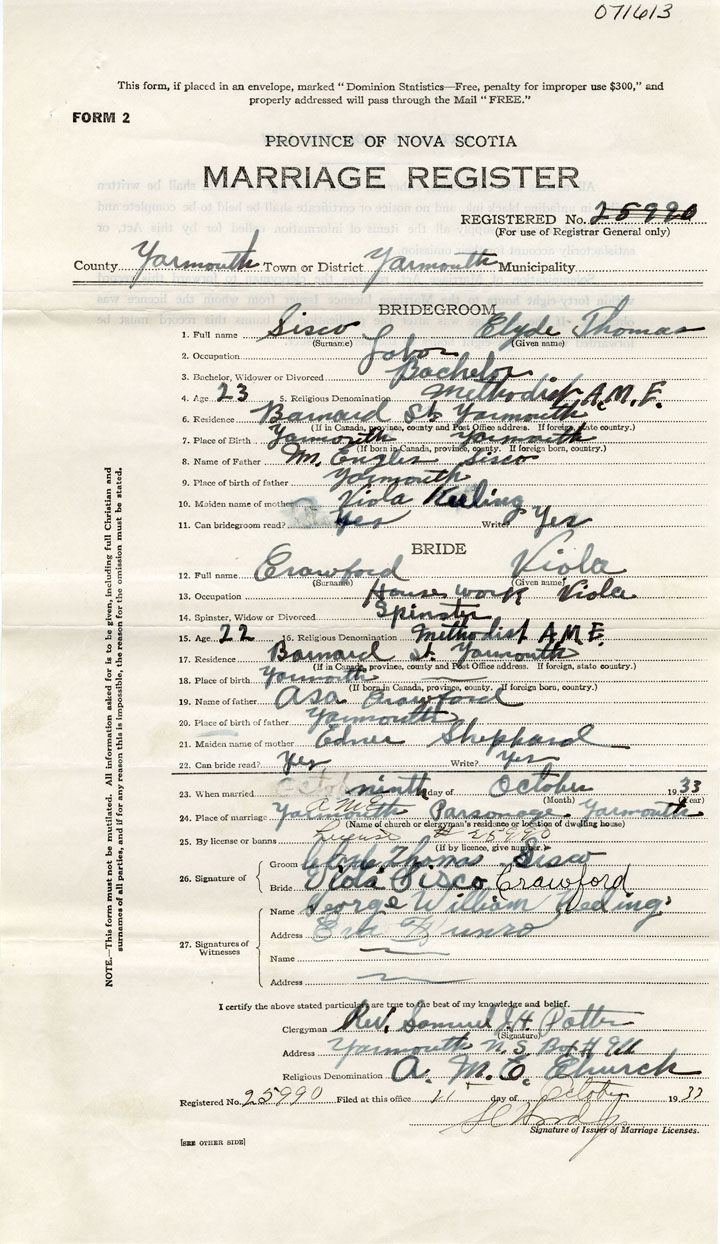 071613
This form, if placed in an envelope, marked "Dominion Statistics—Free, penalty for improper use $300," and
properly addressed will pass through the Mail "FREE."
FORM 2
PROVINCE OF NOVA SCOTIA
MARRIAGE REGISTER
REGISTERED No. 25990
(For use of Registrar General only)
County Yarmouth Town or District Yarmouth Municipality
BRIDEGROOM
1. Full name Sisco Clyde Thomas
(Surname) (Given name)
2. Occupation Labor
3. Bachelor, Widower or Divorced Bachelor
4. Age 23 5. Religious Denomination Methodist A.M.E.
6. Residence Barnard St. Yarmouth
(If in Canada, province, county and Post Office address. If foreign, state country.)
7. Place of Birth Yarmouth Yarmouth
(If born in Canada, province, county. If foreign born, country.)
8. Name of Father M. Sisco
9. Place of birth of father Yarmouth
10. Maiden name of mother Viola Keeling
11. Can bridegroom read? Yes Write? Yes
BRIDE
12. Full name Crawford Viola
(Surname) (Given name)
13. Occupation House work Viola
14. Spinster, Widow or Divorced Spinster
15. Age 22 16. Religious Denomination Methodist A.M.E.
17. Residence Barnard St. Yarmouth
(If in Canada, province, county and Post Office address. If foreign, state country.)
18. Place of birth Yarmouth
(If born in Canada, province, county. If foreign born, country.)
19. Name of father Asa Crawford
20. Place of birth of father Yarmouth
21. Maiden name of mother Edner Sheppard
22. Can bride read? Yes Write? Yes
23. When married ninth day of October 1933
(Month) (Year)
24. Place of marriage Yarmouth A M E Parsonage Yarmouth
(Name of church or clergyman's residence or location of dwelling house)
25. By license or banns License # 25990
(If by licence, give number.)
26. Signature of
Groom Clyde Thomas Sisco
Bride Viola Sisco Crawford
27. Signatures of Witnesses
Name George William
Address
Name
Address
I certify the above stated particulars are true to the best of my knowledge and belief.
Clergyman Rev. Samuel J.H. Potter
(Signature)
Address Yarmouth N.S. Box #
Religious Denomination A. M. E. Church
Registered No. 25990 Filed at this office 11 day of October 1933
Signature of Issuer of Marriage Licenses.
[SEE OTHER SIDE]
NOTE.—This form must not be mutilated. All information asked for is to be given, including full Christian and
surnames of all parties, and if for any reason this is impossible, the reason for the omission must be stated.